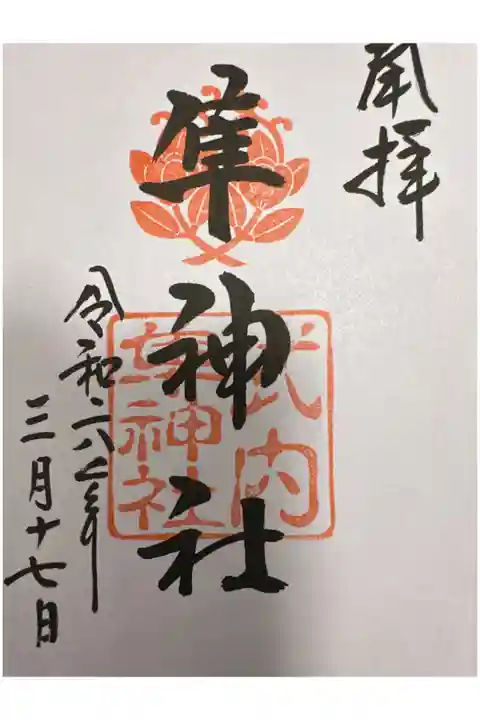 奉拝
隼神社
式内
隼神社
令和 年
三月十七日